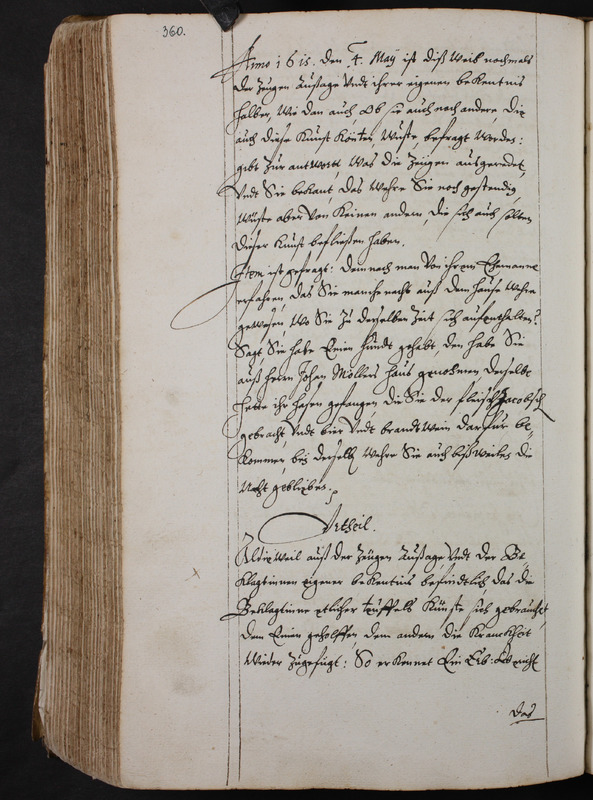 360.
Anno 1615. den 4. Maÿ ist diß Weib nochmals
der Zeugen Außage Vndt ihrer eigenen bekentnis
halber, Wie dan auch, Ob sie auch noch andere, die
auch diese Kunst Könten, Wuste, befragt Worden:
gibt Zur antwortt, Was die Zeügen ausgeredet,
Vndt Sie bekant, das Wehre Sie noch gestendig,
Wuste aber Von Keinen andern, die sich auch solten
dieser Kunst befließen haben.
Item ist gefragt: demnach man Von ihrem Ehemanne
erfahren, das Sie manche nacht auß dem hause Wehre
gewesen, Wo Sie Zu derselben Zeit sich aufenthalten?
Sagt, Sie habe Einen hundt gehabt, den habe Sie
auß herrn Johan Möllers hauß genohmen, derselbe
hette ihr hasen gefangen, die Sie der fleisch Jacobsch
gebracht, Vndt bier Vndt brandtwein darfür be-
kommen, beÿ derselb Wehre Sie auch bißweilen die
Nacht geblieben.
Vrtheil.
Aldieweil auß der Zeügen Außage, Vndt der Be-
klagtinnen eigener bekentnis befindtlich, das die
Beklagtinne etlicher teüffels Künste sich gebrauchet
dem Einen geholffen, dem andern die Kranckheit
Wieder Zugefügt: So erkennet Ein Erb: Gericht
das